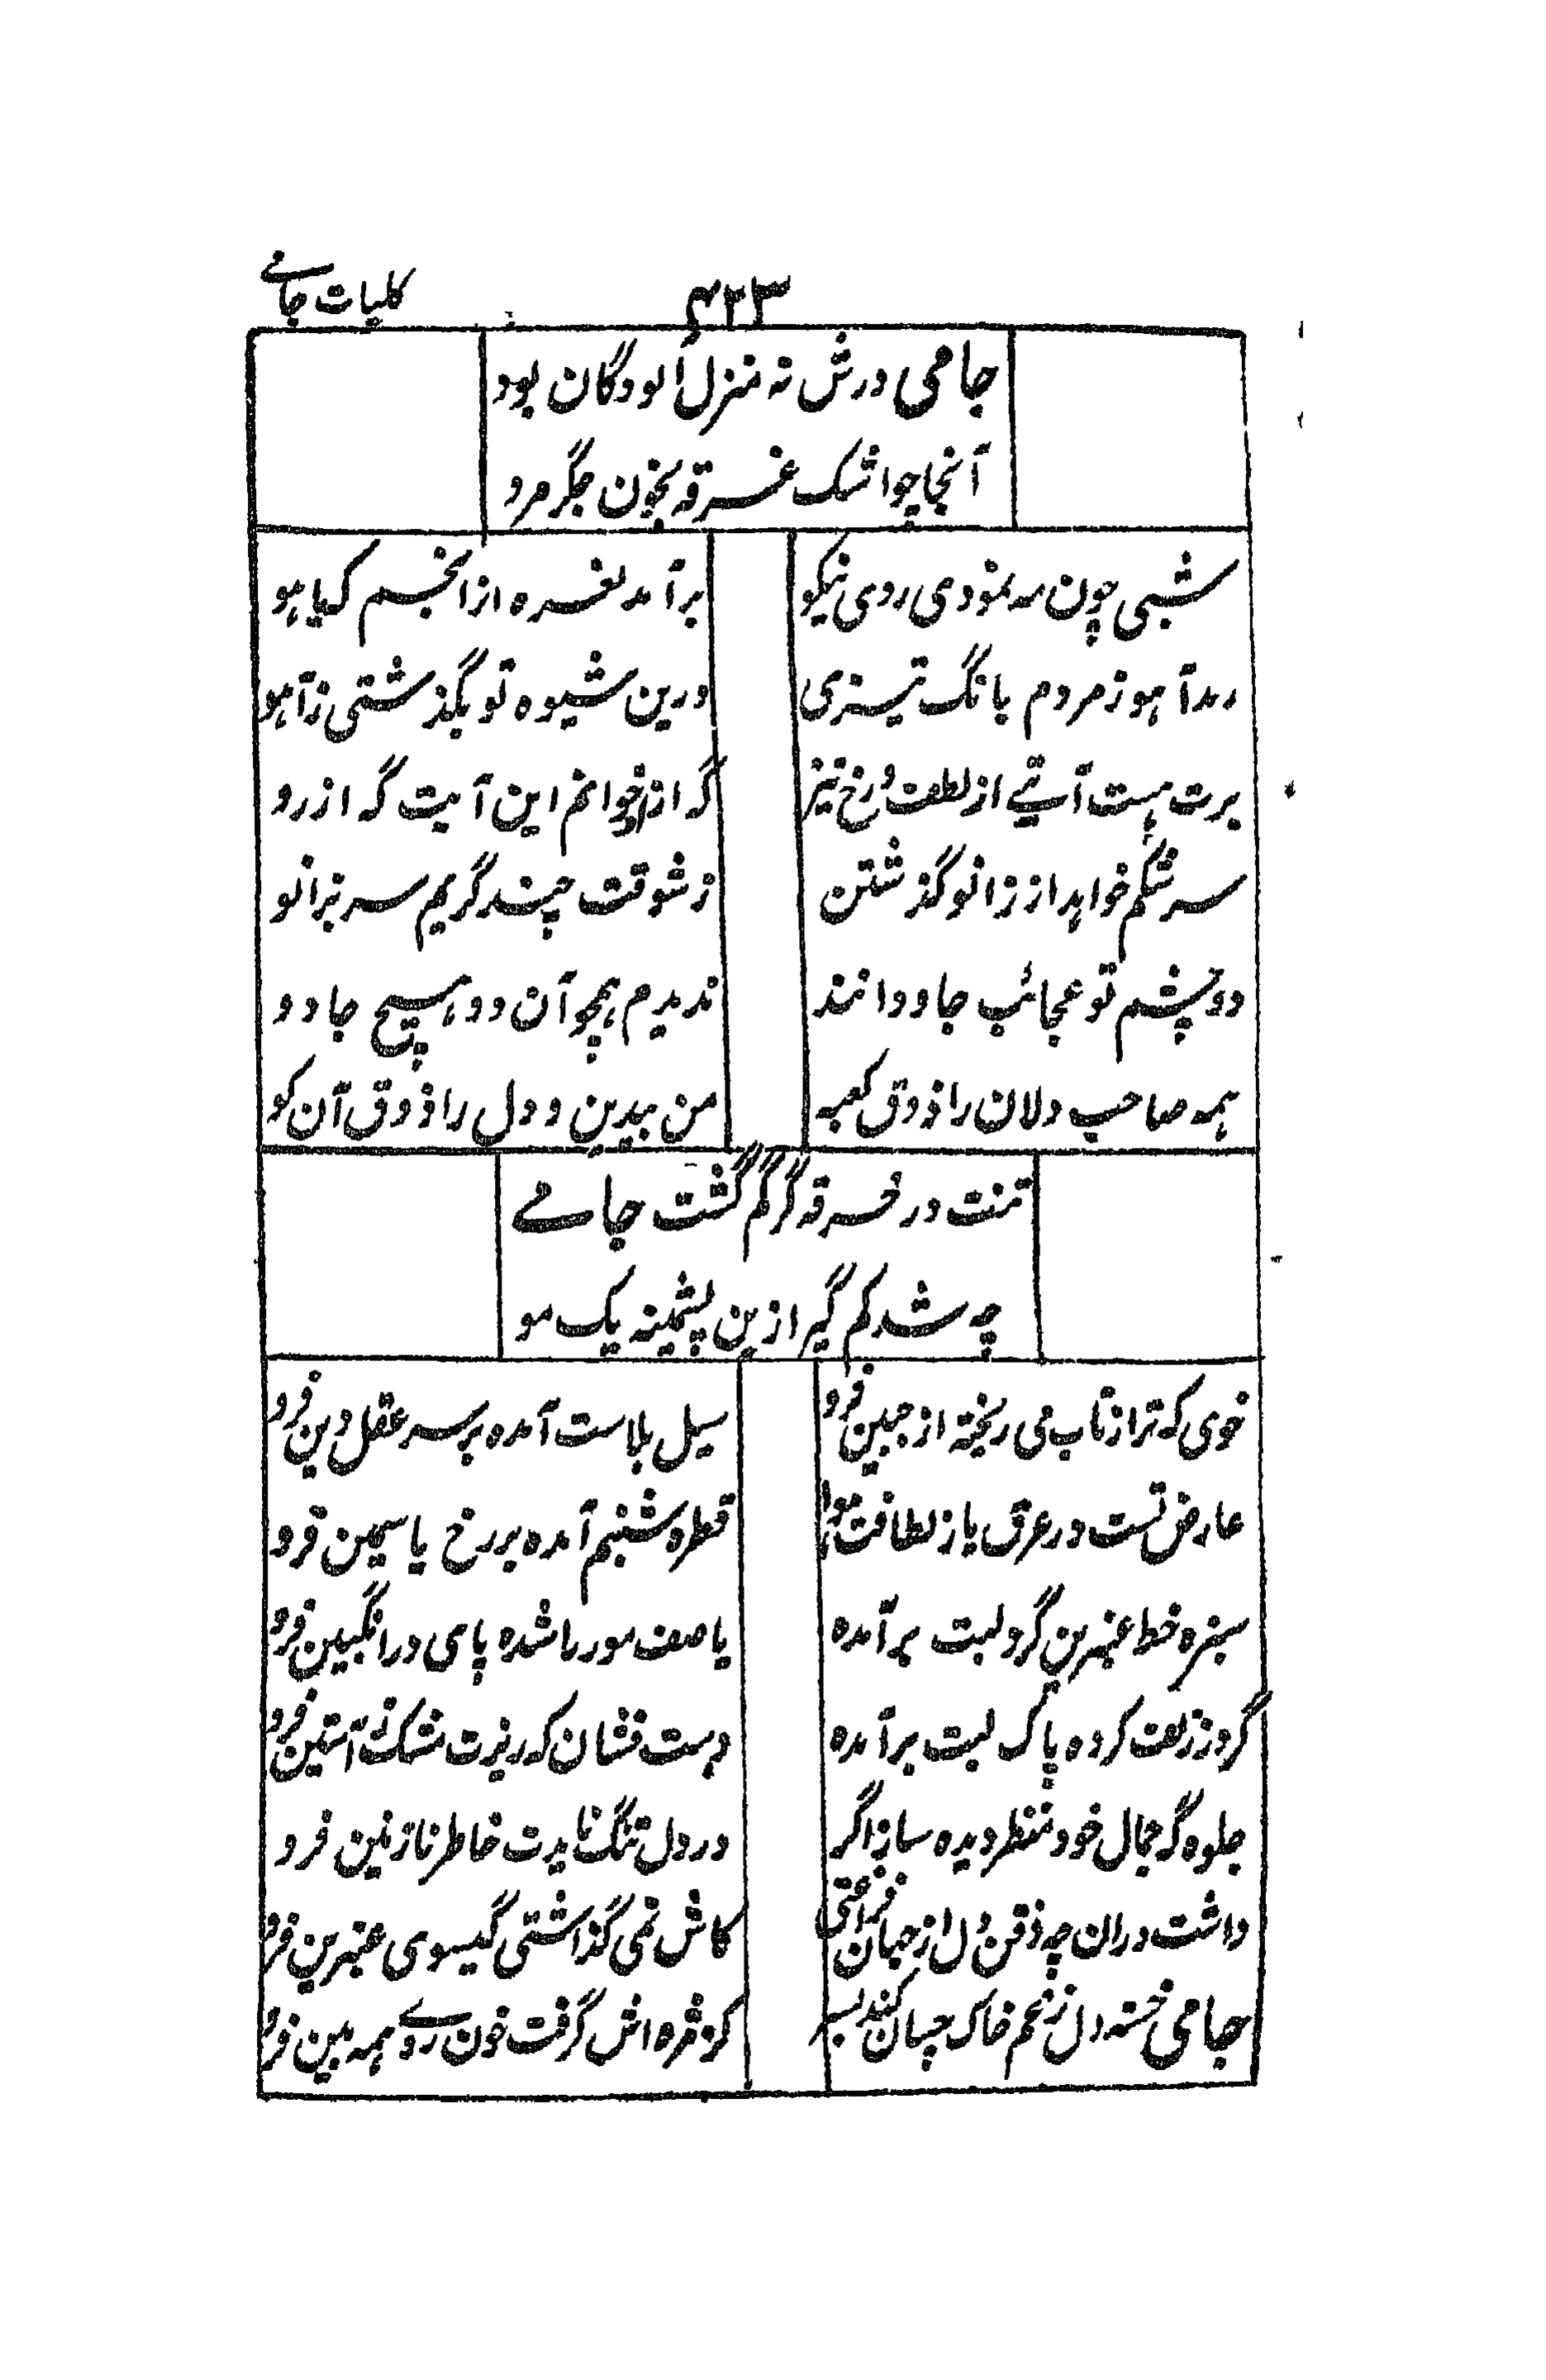 کلیات جامے
۴۲۳
جامی درش نه منزل آلودگان بود
آنجا چو اشک غرقه بخون جگر مرد
شبی چون مه نمودی روی نیکو
برآمد نعره از انجم که یا هو
رمد آهو ز مردم بانگ تیزی
درین شیوه تو بگذشتی ز آهو
برت هست آیتے از لطف و رخ نیز
گه از بر خوانم این آیت گه از رو
سرشکم خواهد از زانو گذشتن
ز شوقت چند گریم سر بزانو
دو چشم تو عجائب جاودانند
ندیدم همچو آن دو هیچ جادو
همه صاحب دلان را ذوق کعبه
من بیدین و دل را ذوق آن کو
تنت در خرقه گر گم گشت جامے
چه شد کم گیر ازین پشمینه یک مو
خوی که ترا ز تاب می ریخته از جبین فرو
سیل بلاست آمده بر سر عقل و دین فرو
عارض تست در عرق یا ز لطافت هوا
قطره شبنم آمده بر رخ یاسمین فرو
سبزه خط عنبرین گرد لبت برآمده
یا صف مور را شده پای در انگبین فرو
گرد ز زلف کرده پاک لبت برآمده
دست فشان که ریزت مشک ز آستین فرو
جلوه گه جمال خود منظر دیده ساز اگر
در دل تنگ ناید خاطر نازنین فرو
داشت دران چه ذقن دل از جهان فراغتی
کاش نمی گذاشتی گیسوی عنبرین فرو
جامی خسته دل ز غم خاک چسان کند بسر
کز مژه اش گرفت خون روے همه زمین فرو